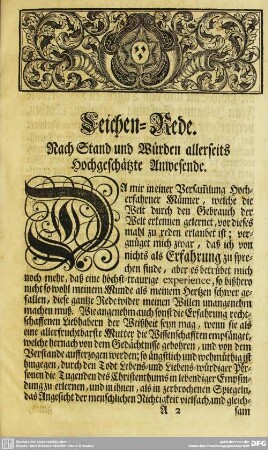 Leichen-Rede.
Nach Stand und Würden allerseits
Hochgeschätzte Anwesende.
DA mir in einer Versam̃lung Hoch-
erfahrner Männer, welche die
Welt durch den Gebrauch der
Welt erkennen gelernet, vor dieses
mahl zu reden erlaubet ist; ver-
gnüget mich zwar, daß ich von
nichts als Erfahrung zu spre-
chen finde, aber es betrübet mich
noch mehr, daß eine höchst-traurige experience, so bißhero
nicht so wohl meinem Munde als meinem Hertzen schwer ge-
fallen, diese gantze Rede wider meinen Willen unangenehm
machen muß. Wie angenehm auch sonst die Erfahrung recht-
schaffenen Liebhabern der Weißheit seyn mag, wenn sie als
eine allerfruchtbarste Mutter die Wissenschafften empfänget,
welche hernach von dem Gedächtnisse gebohren, und von dem
Verstande aufferzogen werden; so ängstlich und wehmüthig ist
hingegen, durch den Tod Lebens- und Liebens-würdiger Per-
sonen die Tugenden des Christenthums in lebendiger Empfin-
dung zu erlernen, und in ihnen, als in zerbrochenen Spiegeln,
das Angesicht der menschlichen Nichtigkeit vielfach, und gleich-
A 2 sam